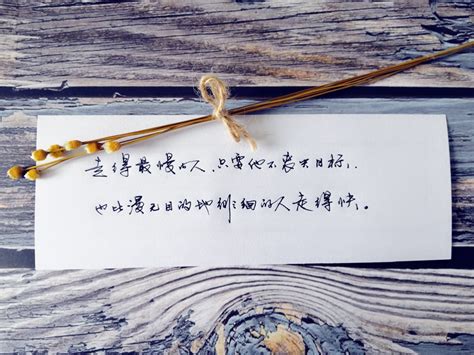 走得最慢的人，只要他不丧失目标，
也比漫无目的地徘徊的人走得快。